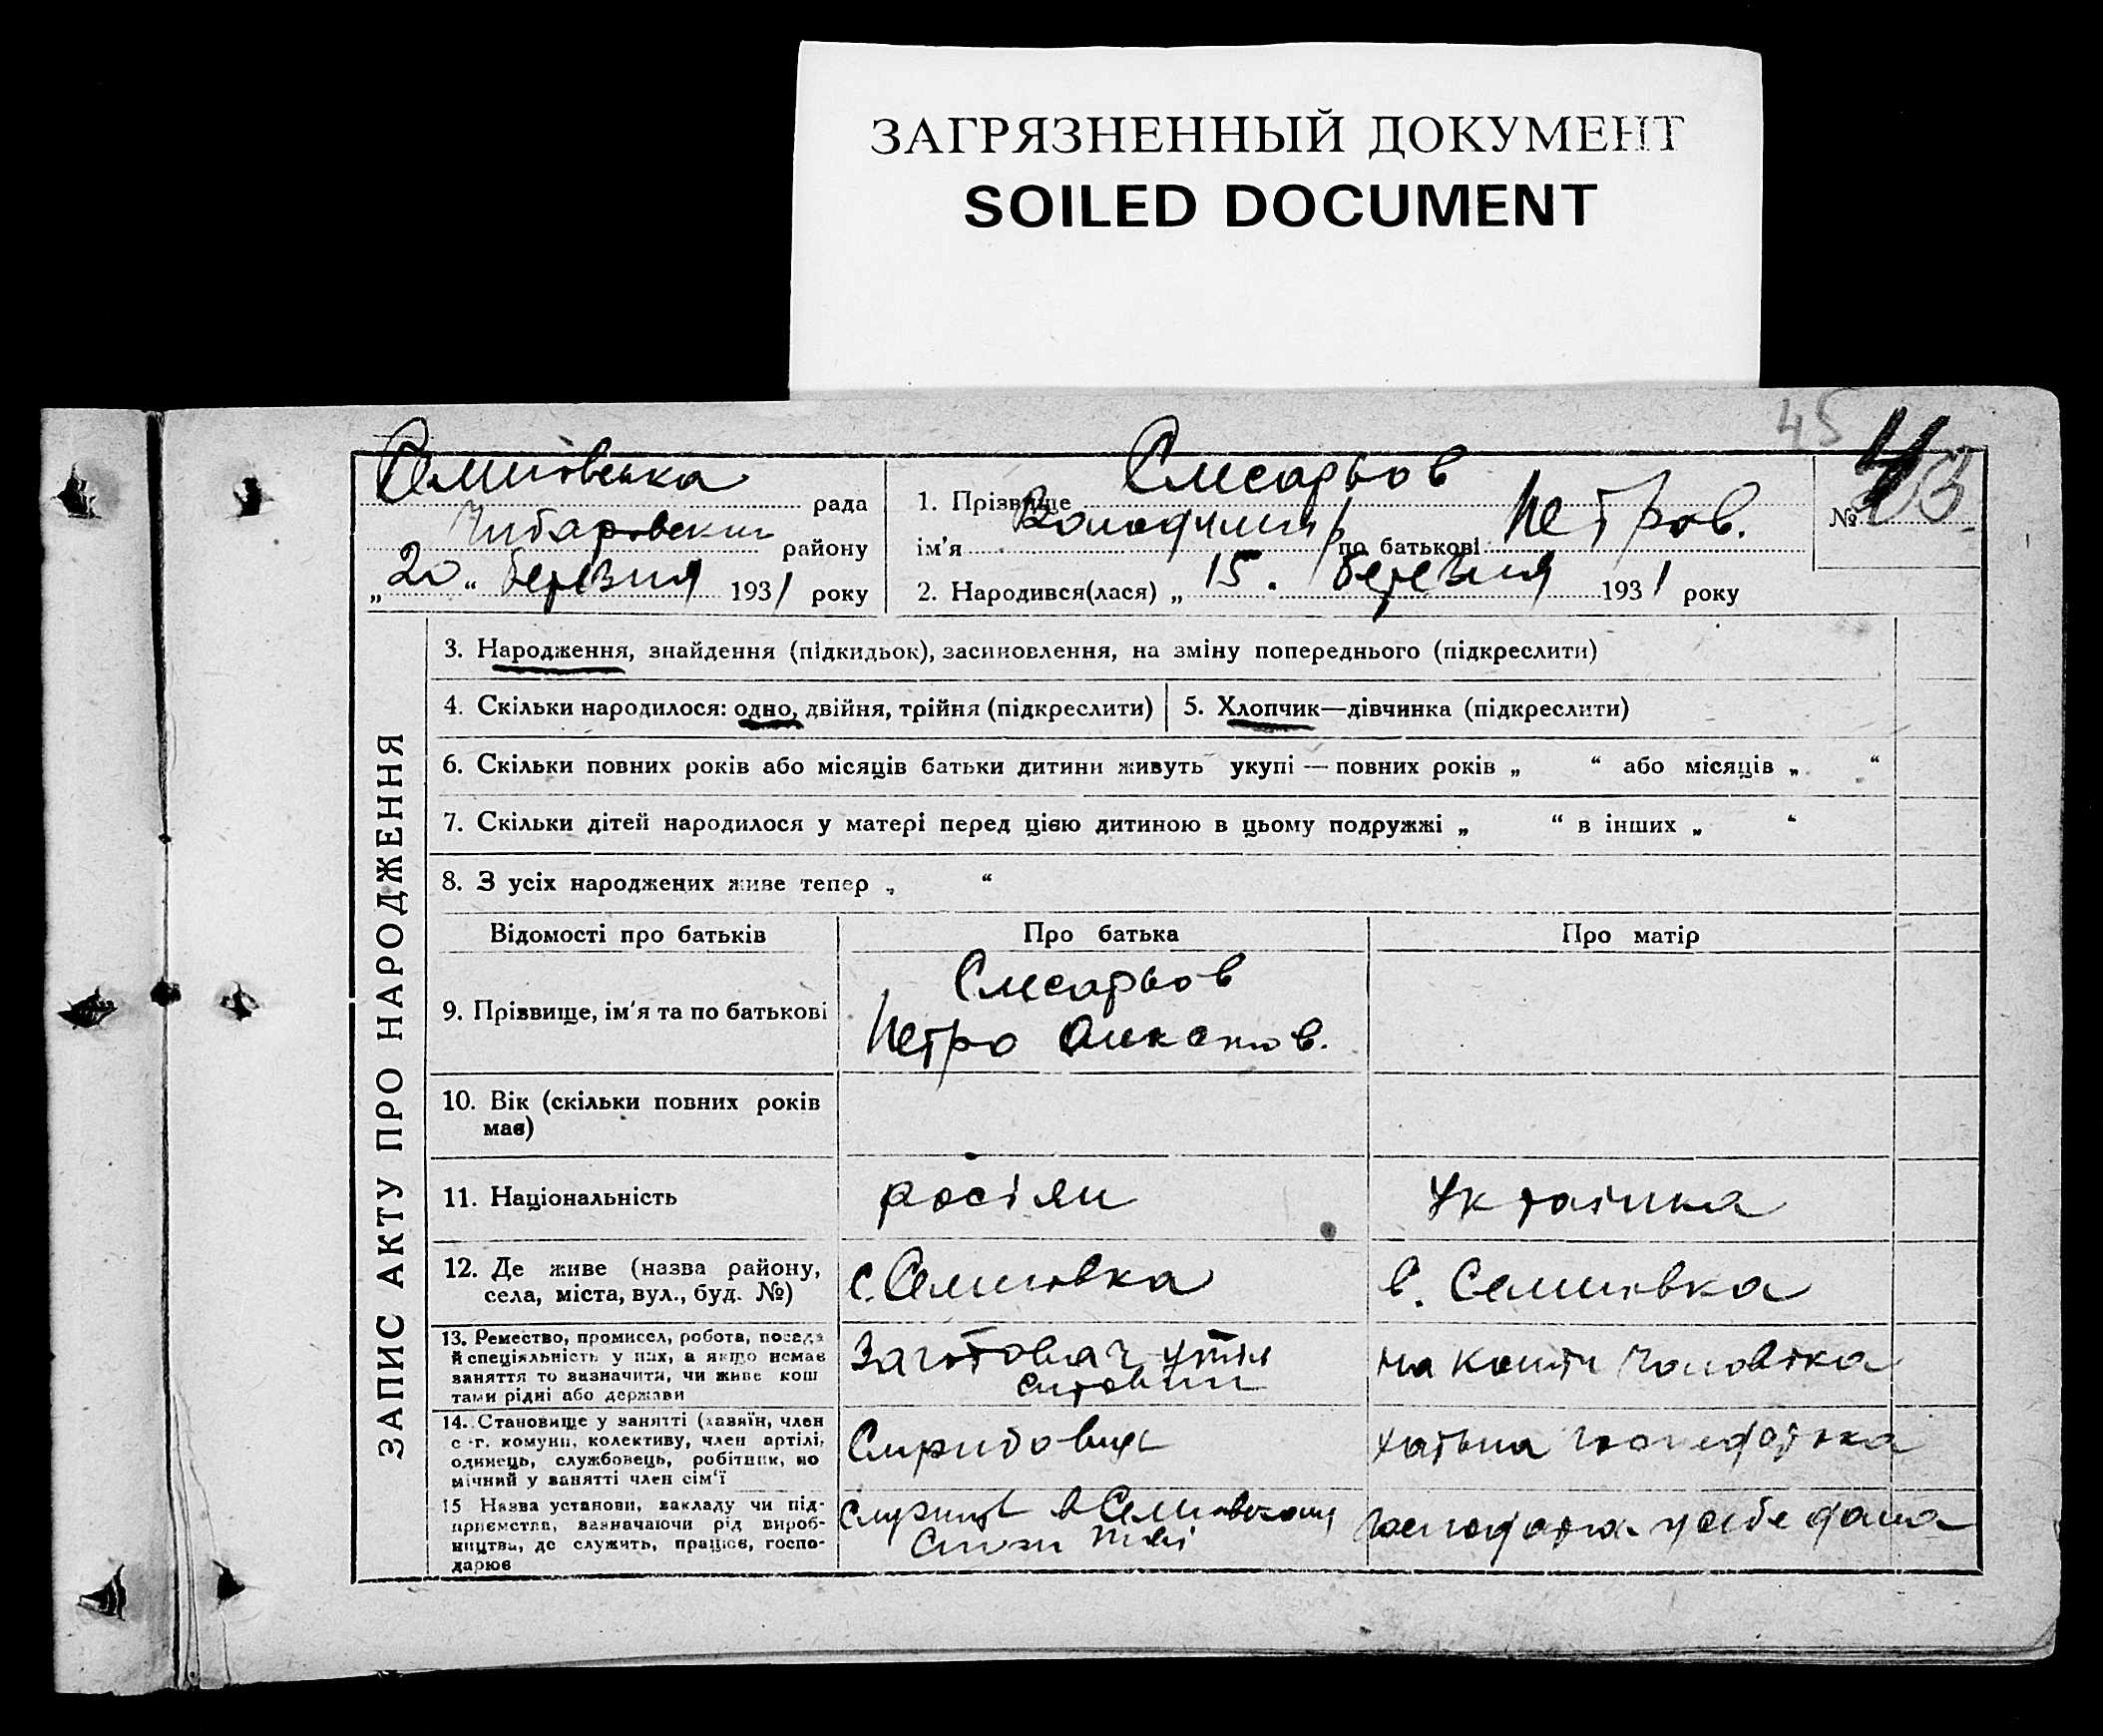 ЗАГРЯЗНЕННЫЙ ДОКУМЕНТ
SOILED DOCUMENT
45
рада
району
„20“ березня 1931 року
1. Прізвище Слесарьов
ім'я Володимир по батькові Петров.
2. Народився(лася) „15. березня 1931 року
№
ЗАПИС АКТУ ПРО НАРОДЖЕННЯ
3. Народження, знайдення (підкидьок), засиновлення, на зміну попереднього (підкреслити)
4. Скільки народилося: одно, двійня, трійня (підкреслити)
5. Хлопчик—дівчинка (підкреслити)
6. Скільки повних років або місяців батьки дитини живуть укупі — повних років „ “ або місяців „ “
7. Скільки дітей народилося у матері перед цією дитиною в цьому подружжі „ “ в інших „ “
8. З усіх народжених живе тепер „ “
Відомості про батьків
Про батька
Про матір
9. Прізвище, ім'я та по батькові
Слесарьов
Петро
10. Вік (скільки повних років
має)
11. Національність
росіян
Українка
12. Де живе (назва району,
села, міста, вул., буд. №)
с.
с.
13. Ремество, промисел, робота, посада
й спеціяльність у них, а якщо немає
заняття то визначити, чи живе кош
тами рідні або держави
Заготовач
на кошти чоловіка
14. Становище у занятті (хазяїн, член
с.-г. комуни, колективу, член артілі,
одинець, службовець, робітник, по
мічний у занятті член сім'ї
Службовець
хатьна господарка
15 Назва установи, закладу чи під-
приємства, зазначаючи рід вироб-
ництва, де служить, працює, госпо-
дарює
в
у себе дома